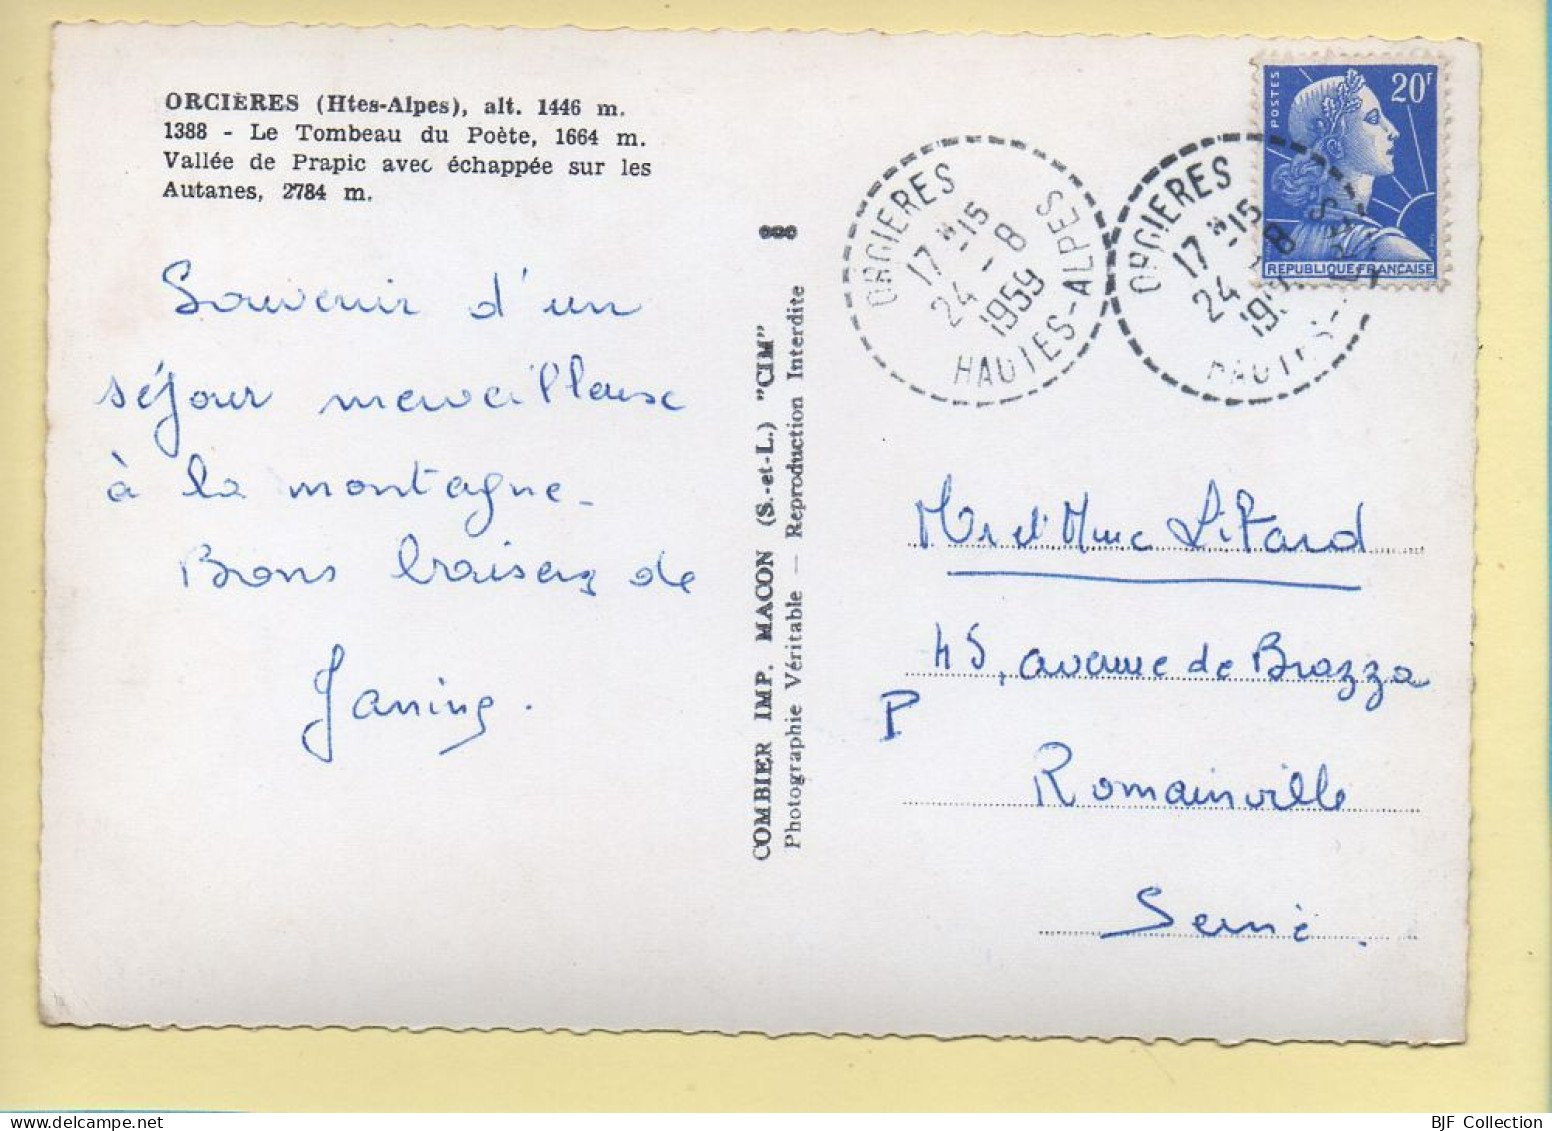 ORCIÈRES (Htes-Alpes), alt. 1446 m.
1388 - Le Tombeau du Poète, 1664 m.
Vallée de Prapic avec échappée sur les
Autanes, 2784 m.
Souvenir d'un
séjour merveilleux
à la montagne.
Bons baisers de
Janine.
COMBIER IMP. MACON (S.-et-L.) "CIM"
Photographie Véritable — Reproduction Interdite
ORCIERES
17 H -15
24 - 8
1959
HAUTES-ALPES
ORCIERES
17 H -15
24 - 8
HAUTES-ALPES
POSTES
20F
REPUBLIQUE FRANÇAISE
Mr et Mme Litard
45, avenue de Brazza
P
Romainville
Seine.
BJF Collection